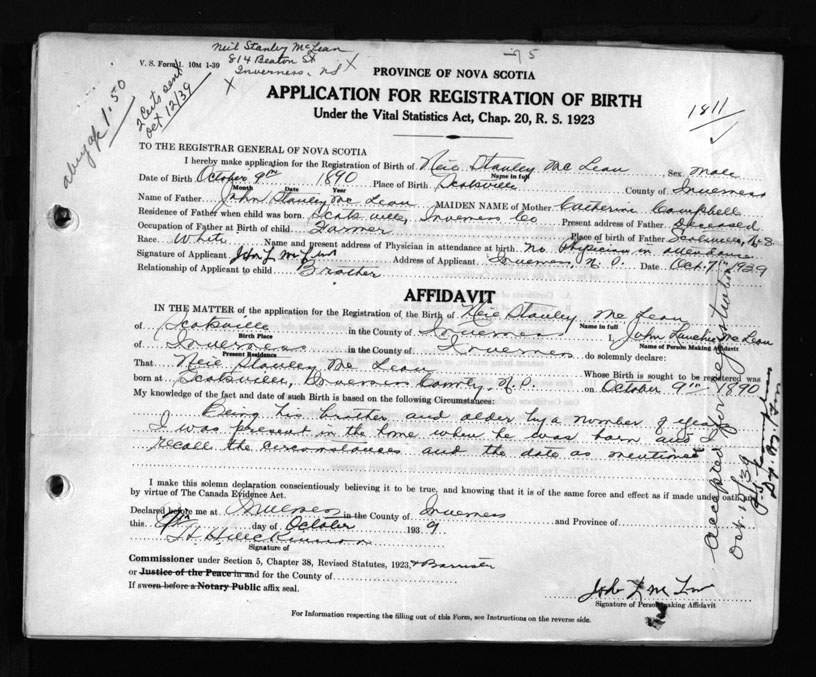 Neil Stanley McLean
814 Beaton St
Inverness, NS
V. S. Form 1. 10M 1-39
75
1.50
2 Certs sent
Oct 12/39
1811
PROVINCE OF NOVA SCOTIA
APPLICATION FOR REGISTRATION OF BIRTH
Under the Vital Statistics Act, Chap. 20, R. S. 1923
TO THE REGISTRAR GENERAL OF NOVA SCOTIA
I hereby make application for the Registration of Birth of Neil Stanley Mc Lean Sex male
Name in full
Date of Birth October 9th 1890 Place of Birth Scotsville County of Inverness
Month Date Year
Name of Father John Stanley Mc Lean MAIDEN NAME of Mother Catherine Campbell
Residence of Father when child was born Scotsville, Inverness Co Present address of Father Deceased
Occupation of Father at Birth of child Farmer Place of birth of Father Scotsville, N.S.
Race White Name and present address of Physician in attendance at birth No Physician in attendance
Signature of Applicant Address of Applicant Inverness, N.S. Date Oct. 9th 1939
Relationship of Applicant to child Brother
AFFIDAVIT
IN THE MATTER of the application for the Registration of the Birth of Neil Stanley Mc Lean
Name in full
of Scotsville in the County of Inverness I, John McLean
Birth Place Name of Person Making Affidavit
of Inverness in the County of Inverness do solemnly declare:
Present Residence
That Neil Stanley Mc Lean Whose Birth is sought to be registered was
born at Scotsville, Inverness County N.S. on October 9th 1890
My knowledge of the fact and date of such Birth is based on the following Circumstances:
Being his brother and older by a number of years
I was present in the home when he was born and I
recall the circumstances and the date as mentioned
I make this solemn declaration conscientiously believing it to be true, and knowing that it is of the same force and effect as if made under oath and
by virtue of The Canada Evidence Act.
Declared before me at Inverness in the County of Inverness and Province of
this 9th day of October 1939
Signature of
Commissioner under Section 5, Chapter 38, Revised Statutes, 1923, & Barrister
or Justice of the Peace in and for the County of
If sworn before a Notary Public affix seal.
Signature of Person making Affidavit
For Information respecting the filling out of this Form, see Instructions on the reverse side.
Accepted for registration
Oct. 12/39